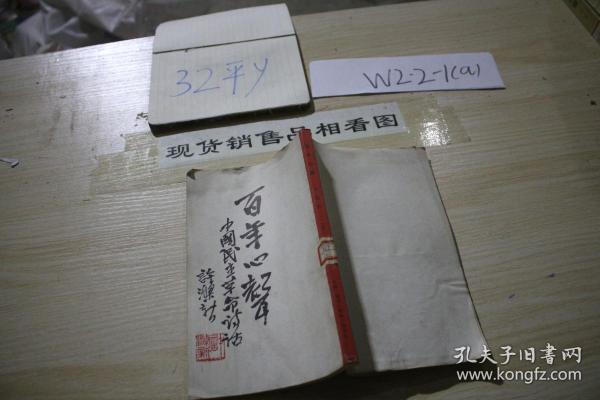 32平y
W2·2-1(a)
现货销售品相看图
百年心声
中国民主革命诗话
许涤新
孔夫子旧书网
www.kongfz.com